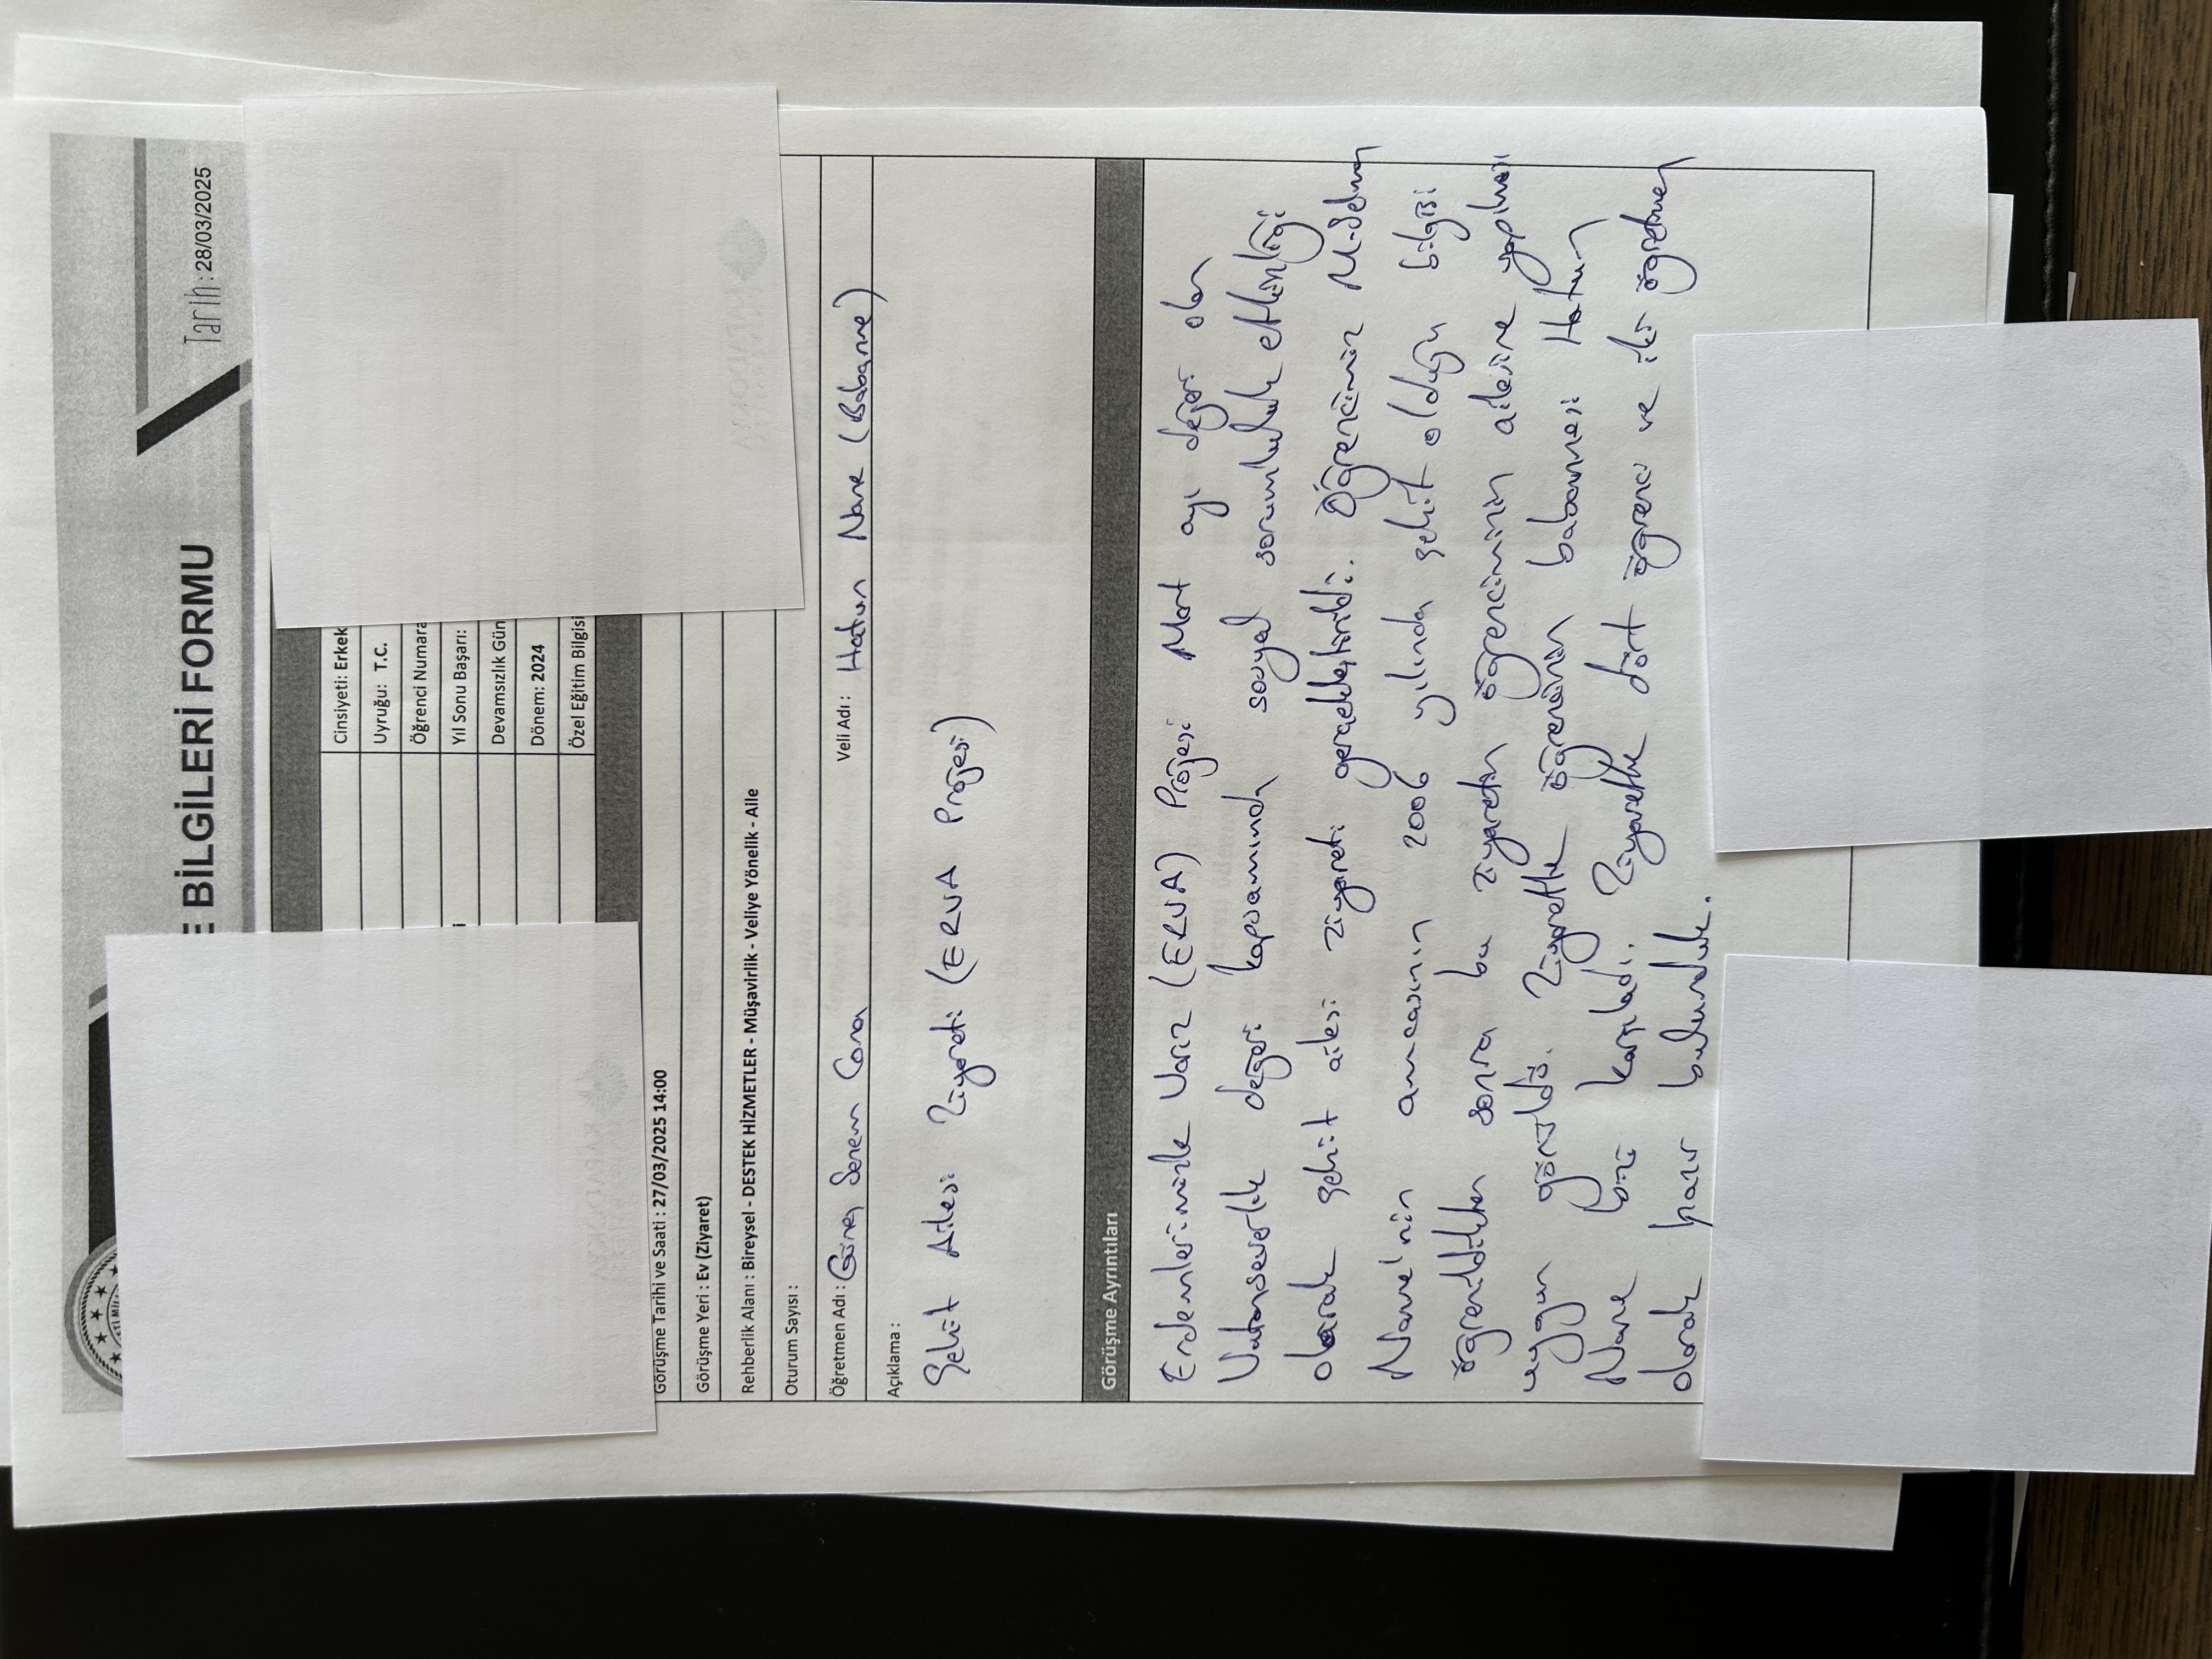 E BİLGİLERİ FORMU
Tarih : 28/03/2025
Cinsiyeti: Erkek
Uyruğu: T.C.
Öğrenci Numara
Yıl Sonu Başarı:
Devamsızlık Gün
Dönem: 2024
Özel Eğitim Bilgisi
Görüşme Tarihi ve Saati : 27/03/2025 14:00
Görüşme Yeri : Ev (Ziyaret)
Rehberlik Alanı : Bireysel - DESTEK HİZMETLER - Müşavirlik - Veliye Yönelik - Aile
Oturum Sayısı :
Öğretmen Adı : Güneş Senem Cona Veli Adı : Hatun Nane (Babanne)
Açıklama :
Şehit Ailesi Ziyareti (ERVA Projesi)
Görüşme Ayrıntıları
Erdemlerimizle Varız (ERVA) Projesi Mart ayı değeri olan
Vatanseverlik değeri kapsamında sosyal sorumluluk etkinliği
olarak şehit ailesi ziyareti gerçekleştirildi. Öğrencimiz
Nane'nin amcasının 2006 yılında şehit olduğu bilgisi
öğrenildikten sonra bu ziyaretin öğrencimizin ailesine yapılması
uygun görüldü. Ziyarette öğrencinin babannesi Hatun
Nane bizi karşıladı. Ziyarette dört öğrenci ve iki öğretmen
olarak hazır bulunduk.